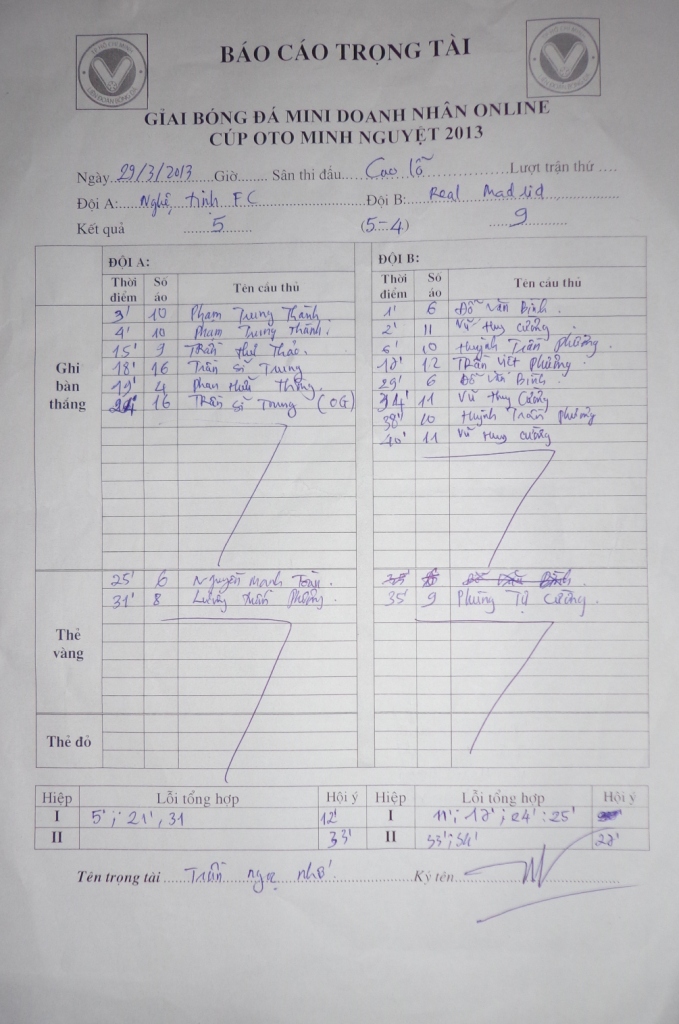 BÁO CÁO TRỌNG TÀI
GIẢI BÓNG ĐÁ MINI DOANH NHÂN ONLINE
CÚP OTO MINH NGUYỆT 2013
Ngày 29/3/2013 Giờ........ Sân thi đấu Cao lỗ Lượt trận thứ ....
Đội A: Nghệ tịnh FC Đội B: Real Madrid
Kết quả 5 (5-4) 9
ĐỘI A: ĐỘI B:
Thời điểm Số áo Tên cầu thủ Thời điểm Số áo Tên cầu thủ
Ghi bàn thắng
3' 10 Phạm Trung Thành 1' 6 Đỗ Văn Bình
4' 10 Phạm Trung Thành 2' 11 Vũ Huy Cường
15' 9 Trần Hữu Thảo 6' 10 Huỳnh Trần Phương
18' 16 Trần Sĩ Trung 12 Trần Viết Phương
19' 4 Phan Hữu Thắng 29' 6 Đỗ Văn Bình
24' 16 Trần Sĩ Trung (OG) 34' 11 Vũ Huy Cường
38' 10 Huỳnh Trần Phương
40' 11 Vũ Huy Cường
Thẻ vàng
25' 6 Nguyễn Mạnh 35' 9 Phùng Tự Cường
31' 8 Tuấn
Thẻ đỏ
Hiệp Lỗi tổng hợp Hội ý Hiệp Lỗi tổng hợp Hội ý
I 5'; 21', 31 12' I 11'; 24'; 25'
II 33' II 33'; 34'
Tên trọng tài Trần Ký tên